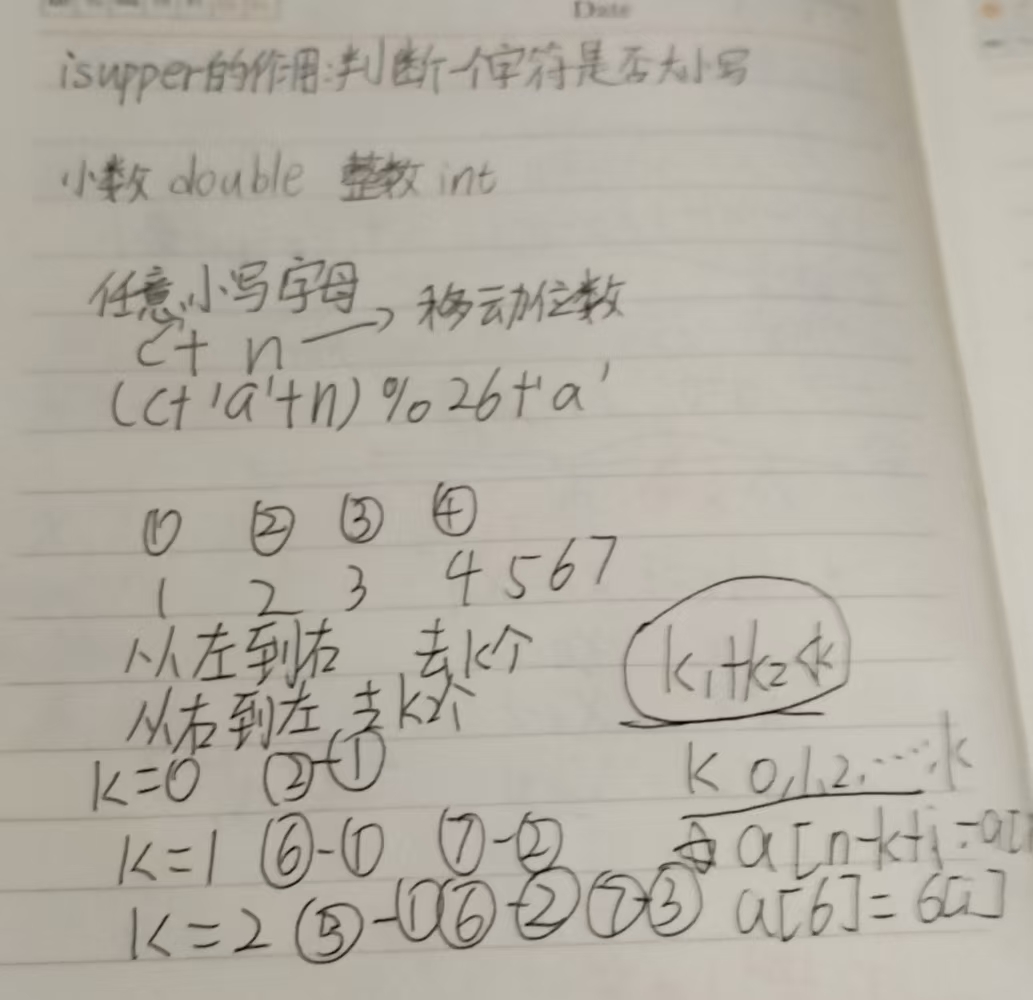 Date
isupper的作用:判断一个字符是否大小写
小数 double 整数 int
任意小写字母
c + n → 移动位数
(c+'a'+n)%26+'a'
① ② ③ ④
1 2 3 4 5 6 7
从左到右 去k个
从右到左 去k2个
k1+k2<k
k=0 ②-①
k 0,1,2,……,k
k=1 ⑥-① ⑦-②
a[n-k+i]-a[
k=2 ⑤-① ⑥-② ⑦-③
a[6]=